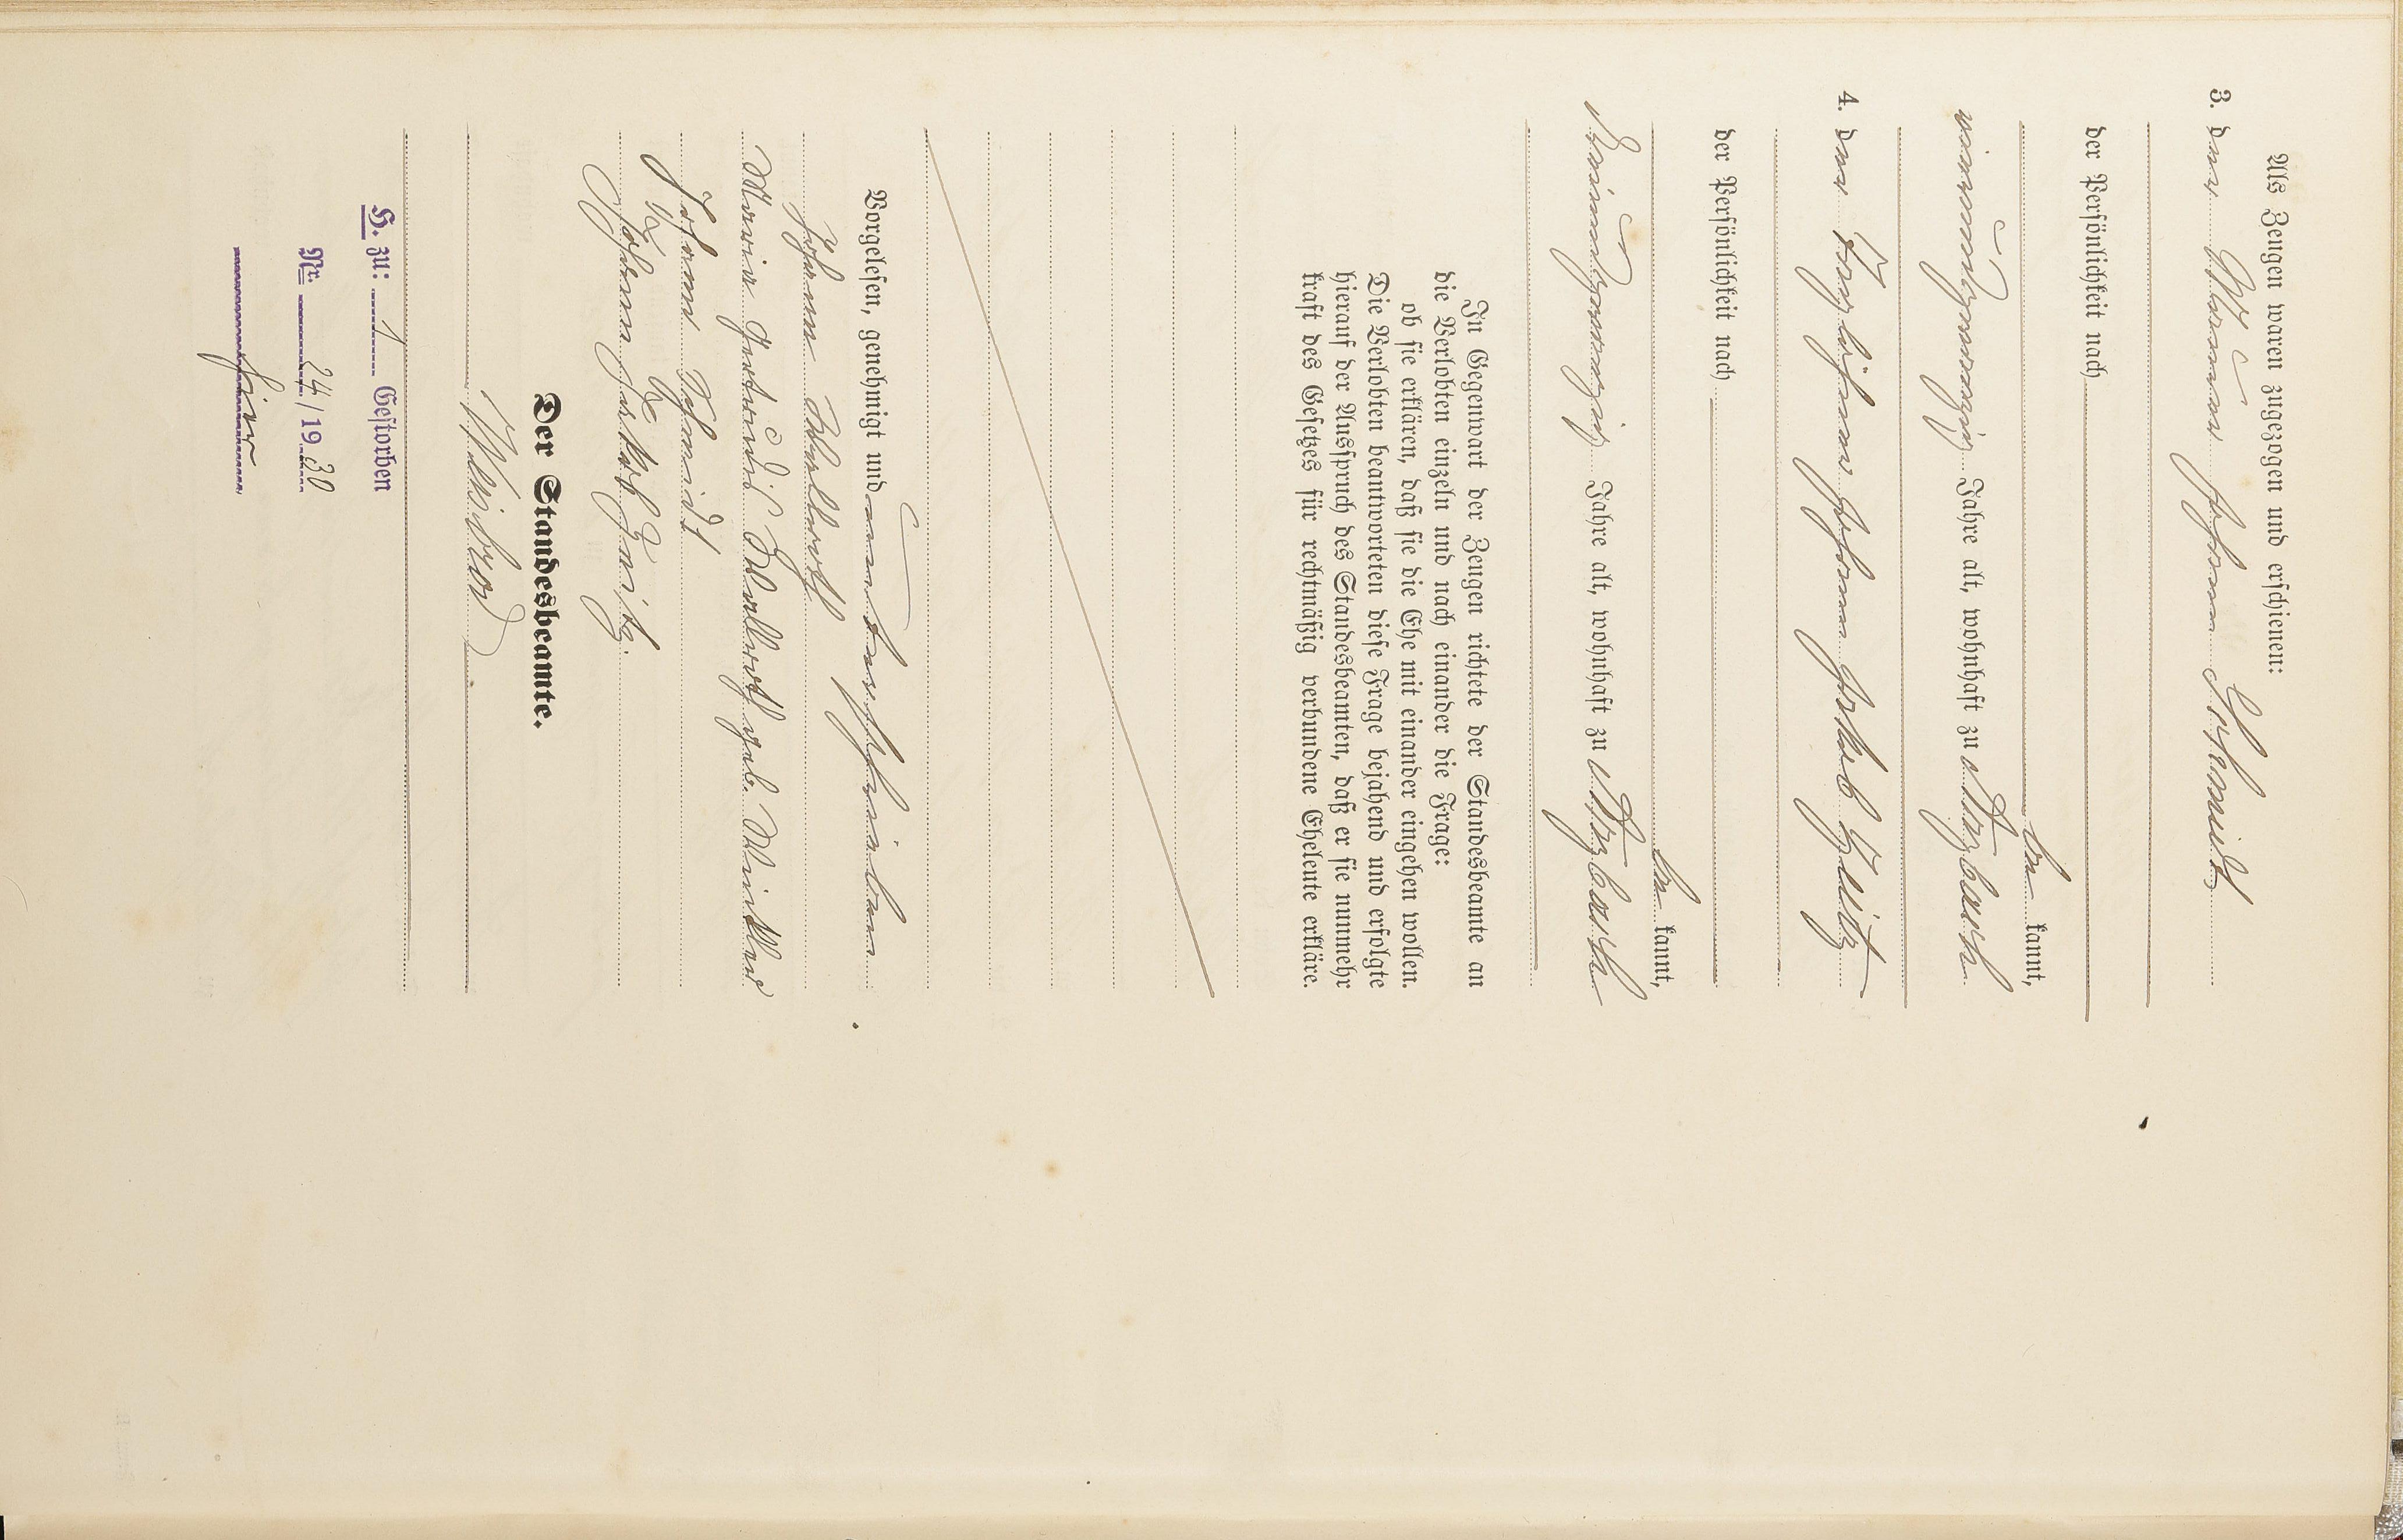 Als Zeugen waren zugezogen und erschienen:
3. der Maurer Johann Schmidt
der Persönlichkeit nach
be kannt,
Jahre alt, wohnhaft zu Arzbach
4. der Johann Jakob
der Persönlichkeit nach
be kannt,
Jahre alt, wohnhaft zu Arzbach
In Gegenwart der Zeugen richtete der Standesbeamte an
die Verlobten einzeln und nach einander die Frage:
ob sie erklären, daß sie die Ehe mit einander eingehen wollen.
Die Verlobten beantworteten diese Frage bejahend und erfolgte
hierauf der Ausspruch des Standesbeamten, daß er sie nunmehr
kraft des Gesetzes für rechtmäßig verbundene Eheleute erkläre.
Vorgelesen, genehmigt und unterschrieben
Johann
Maria Gertrud geb. Winkler
Johann Schmidt
Johann Jakob
Der Standesbeamte.
H. zu: 1 Gestorben
Nr. 24/1930
hier